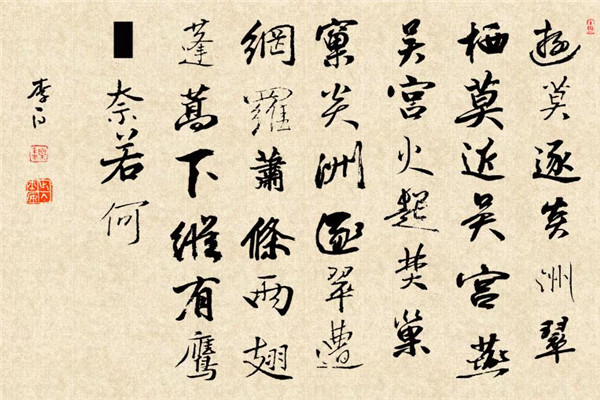 遊莫逐炎洲翠
栖莫近吴宫燕
吴宫火起焚巢
窠炎洲逐翠遭
網羅蕭條兩翅
蓬蒿下縱有鷹
奈若何
李白